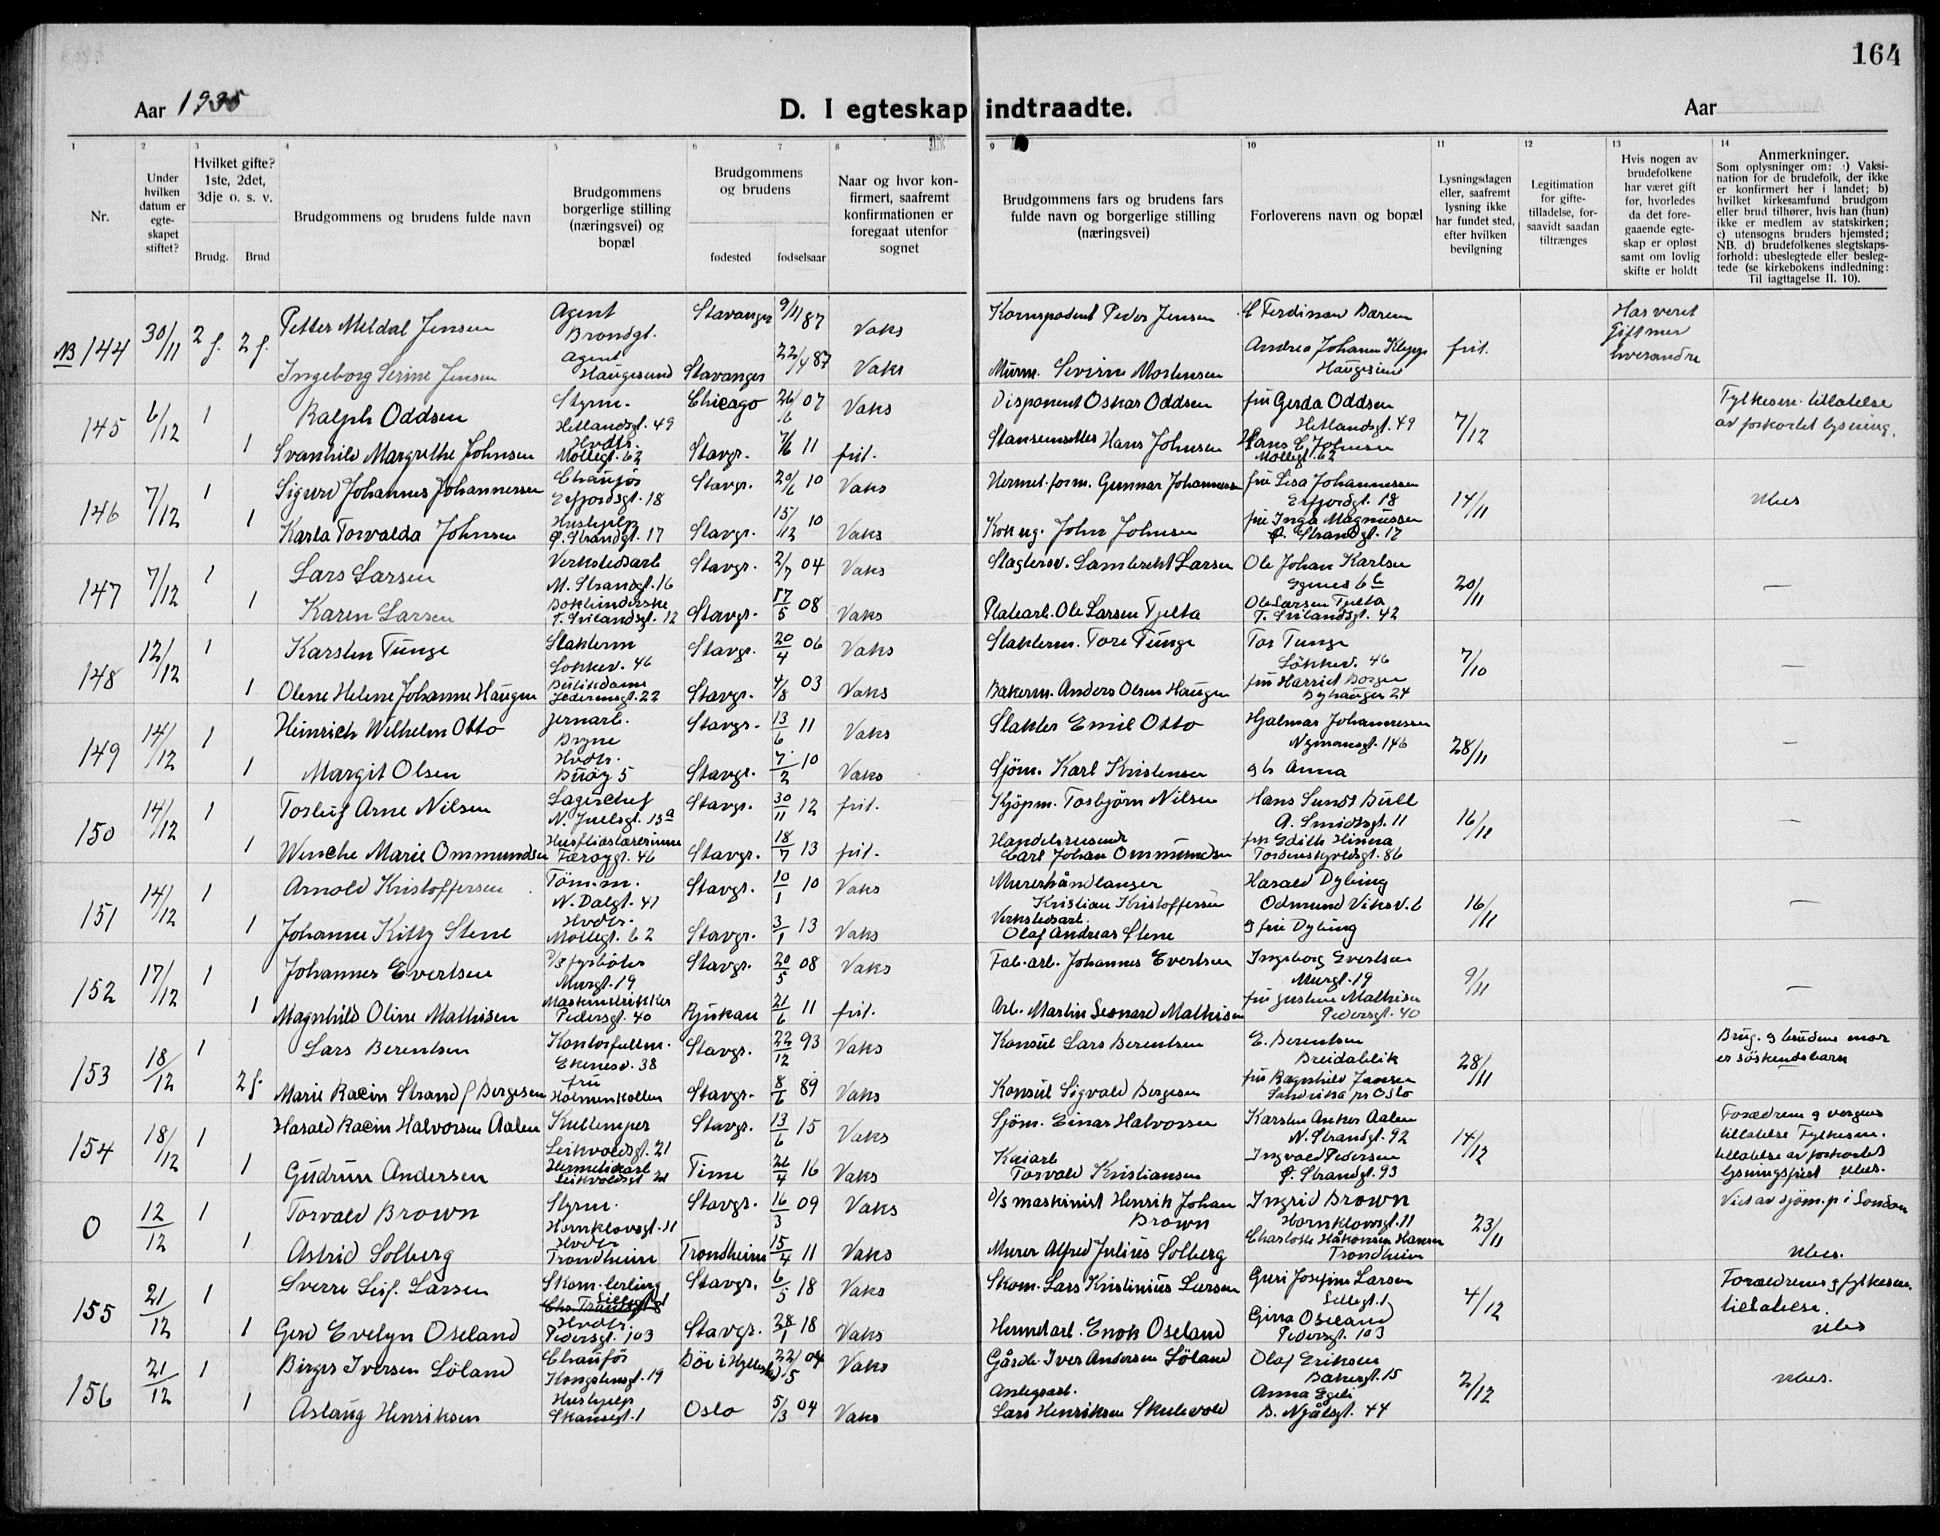 164
Aar 1935
D. I egteskap indtraadte.
Aar
1 2 3 4 5 6 7 8 9 10 11 12 13 14
Nr.
Under hvilken datum er egte-skapet stiftet?
Hvilket gifte? 1ste, 2det, 3dje o. s. v.
Brudg. Brud
Brudgommens og brudens fulde navn
Brudgommens borgerlige stilling (næringsvei) og bopæl
Brudgommens og brudens
fødested fødselsaar
Naar og hvor kon-firmert, saafremt konfirmationen er foregaat utenfor sognet
Brudgommens fars og brudens fars fulde navn og borgerlige stilling (næringsvei)
Forloverens navn og bopæl
Lysningsdagen eller, saafremt lysning ikke har fundet sted, efter hvilken bevilgning
Legitimation for gifte-tilladelse, for-saavidt saadan tiltrænges
Hvis nogen av brudefolkene har været gift før, hvorledes da det fore-gaaende egte-skap er opløst samt om lovlig skifte er holdt
Anmerkninger.
Som oplysninger om: a) Vaksi-nation for de brudefolk, der ikke er konfirmert her i landet; b) hvilket kirkesamfund brudgom eller brud tilhører, hvis han (hun) ikke er medlem av statskirken; c) utensogns bruders hjemsted; NB. d) brudefolkenes slegtskaps-forhold: ubeslegtede eller besleg-tede (se kirkebokens indledning: Til iagttagelse II. 10).
NB 144 30/11 2 g. 2 g. Petter Meldal Jensen Agent Brondgt. Stavanger 9/11 87 Vaks Peder Jensen Ferdinan Har veret
Andrea Johanne Klepp frit. Gift med
Ingeborg Serine Jensen Agent Haugesund Stavanger 22/4 87 Vaks Murm. Severin Mortensen Haugesund hverandre
145 6/12 1 Ralph Oddsen Styrm. Hetlandsgt. 49 Chicago 26/6 07 Vaks Disponent Oskar Oddsen fru Gerda Oddsen Hetlandsgt. 49 7/12 Fylkesm. tillatelse
av forkortet lysning.
1 Svanhild Margrethe Johnsen Hvdtr. Møllegt. 62 Stavgr. 7/6 11 frit. Hans Johnsen Hans E Johnsen Møllegt. 62
146 7/12 1 Sigurd Johannes Johannessen Chauffør Erfjordsgt. 18 Stavgr. 20/6 10 Vaks Hermet. form. Gunnar Johannessen fru Lisa Johannessen Erfjordgt. 18 14/11 Ubes
1 Karla Torvalda Johnsen Hushjelp Ø. Strandgt. 17 Stavgr. 15/12 10 Vaks John Johnsen fru Inga Magnussen Ø. Strandgt. 17
147 7/12 1 Lars Larsen Verkstedsarb M. Strandgt. 16 Stavgr. 2/7 04 Vaks Lambrecht Larsen Ole Johan Karlsen 20/11 —
1 Karen Larsen Stavgr. 17/5 08 Vaks Platearb. Ole Larsen Tjelta Ole Larsen Tjelta 42
148 12/12 1 Karsten Tunge Slakterm Løkkev. 46 Stavgr. 20/4 06 Vaks Slakterm. Tore Tunge Tor Tunge Løkkev. 46 7/10 —
1 Olene Helene Johanne Haugen Butikdame 22 Stavgr. 4/8 03 Vaks Bakerm. Anders Olsen Haugen fru Harriet Borgen Byhaugen 24
149 14/12 1 Heinrich Wilhelm Otto Jernarb. Bryne Stavgr. 13/6 11 Vaks Slakter Emil Otto Hjalmar Johannessen Nymansgt. 146 28/11 —
1 Margit Olsen Hvdtr. Buøy 5 Stavgr. 7/2 10 Vaks Sjøm. Karl Kristensen og Anna
150 14/12 1 Torleif Arne Nilsen Lagerchef N. Juelsgt. 13a Stavgr. 30/11 12 frit. Kjøpm. Torbjørn Nilsen Hans Sundt Bull A. Smidtsgt. 11 16/11 —
1 Wenche Marie Ommundsen Husflidslærerinne Færøygt. 46 Stavgr. 18/7 13 frit. Handelsreisende Carl Johan Ommundsen fru Edith Hinna Tordenskjoldsgt. 86
151 14/12 1 Arnold Kristoffersen Tøm.m. N. Dalgt. 41 Stavgr. 10/1 10 Vaks Murerhåndlanger Kristian Kristoffersen Harald Dybing Odmund Viksv. 6 16/11 —
1 Johanne Kitty Stene Hvdtr. Møllegt. 62 Stavgr. 3/1 13 Vaks Verkstedsarb. Olaf Andreas Stene og fru Dybing
152 17/12 1 Johannes Evertsen D/S fyrbøter Murgt. 19 Stavgr. 20/5 08 Vaks Fab. arb. Johannes Evertsen Ingeborg Evertsen Murgt. 19 9/11 —
1 Magnhild Oline Mathisen Maskinstrikker Pedersgt. 40 Rjukan 21/6 11 frit. Arb. Martin Leonard Mathisen fru Gustine Mathisen Pedersgt. 40
153 18/12 1 Lars Berentsen Kontorfullm. Ekenesv. 38 Stavgr. 22/12 93 Vaks Konsul Lars Berentsen E. Berentsen Breidablik 28/11 Brug. og brudens mor
er søskendebarn
2 g. Marie Racin Strand f Bergesen fru Holmenkollen Stavgr. 8/6 89 Vaks Konsul Sigvald Bergesen fru Ragnhild Jansen Oslo
154 18/12 1 Harald Racin Halvorsen Aalen Leikvoldsgt. 21 Stavgr. 13/6 15 Vaks Sjøm. Einar Halvorsen Karsten Anker Aalen N. Strandgt. 92 14/12 Forældrene og verges
tillatelse Fylkesm.
tillatelse av forkortet
lysningsfrist Ubes.
1 Gudrun Andersen Hermetikarb Leikvoldsgt 21 Time 26/4 16 Vaks Kaiarb Torvald Kristiansen Ingvald Pedersen Ø. Strandgt. 93
0 12/12 1 Torvald Brown Styrm. Hornklovsgt. 11 Stavgr. 16/3 09 Vaks D/S maskinist Henrik Johan Brown Ingrid Brown Hornklovsgt. 11 23/11 Viet av sjøm.p i London
1 Astrid Solberg Hvdtr Trondheim Trondheim 15/4 11 Vaks Murer Alfred Julius Solberg Charlotte Håkonsen Hansen Trondheim Ubes.
155 21/12 1 Sverre Leif Larsen Skom. lerling Lillegt 1 Stavgr. 6/5 18 Vaks Skom. Lars Kristinius Larsen Guri Josefine Larsen Lillegt. 1 4/12 Forældrenes og fylkesm.
tillatelse.
Ubes
1 Gerd Evelyn Oseland Hvdtr. Pedersgt. 103 Stavgr. 28/1 18 Vaks Hermetarb. Enok Oseland Gina Oseland Pedersgt. 103
156 21/12 1 Birger Iversen Løland Chauffør Kongsteinsgt. 19 22/5 04 Vaks Gårdb. Iver Andersen Løland Olaf Eriksen Bakergt. 15 2/12 Ubes.
1 Aslaug Henriksen Hushjelp Skansegt. 1 Oslo 5/3 04 Vaks Anlegsarb. Lars Henriksen Skulevold Anna Egeli B. Njålsgt. 44